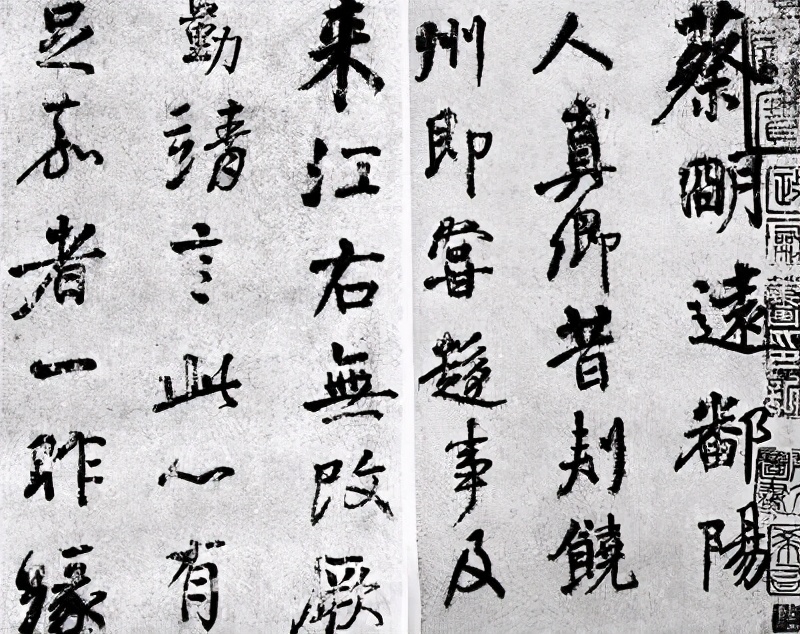 蔡明遠鄱陽
人真卿昔刺饒
州即嘗趨事及
来江右無改厥
勤靖言此心有
足嘉者一昨緣